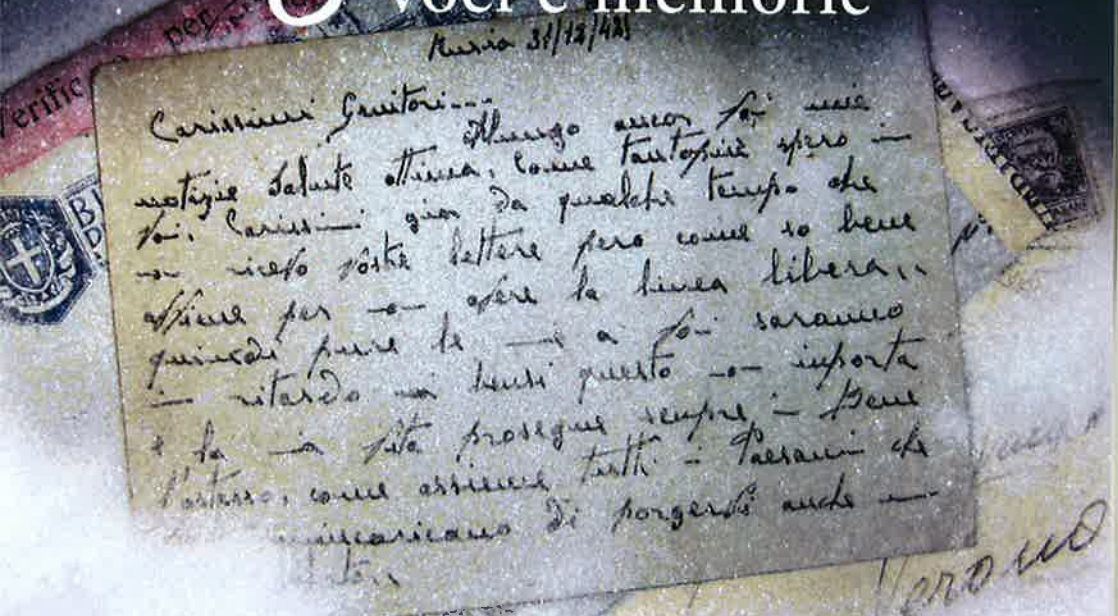 voci e memorie
Russia 31/12/42
Carissimi Genitori---
Allungo ancor voi mie
notizie Salute ottima, Come tantopiù spero in
voi. Carissimi gia da qualche tempo che
non ricevo vostre lettere pero come so bene
affine per non avere la linea libera,,
quindi pure le mie a voi saranno
in ritardo ma bensi questo non importa
e la mia vita prosegue sempre in Bene
l'ostesso, come assieme tutti i Paesani che
mincaricano di porgervi anche
Verific
per